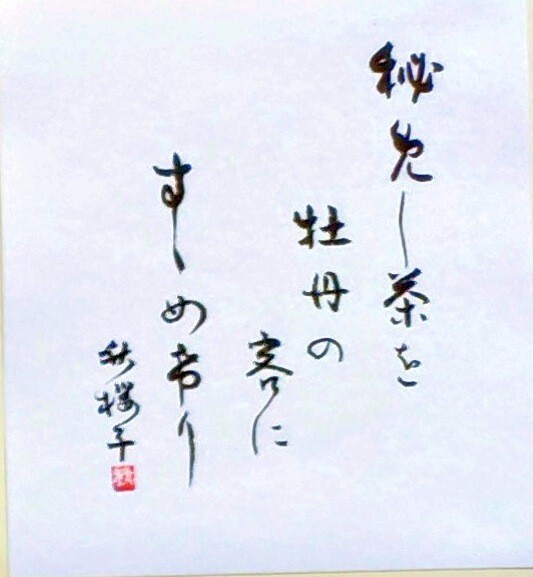 秘免し茶を
牡丹の
客に
すゝめ希り
秋櫻子